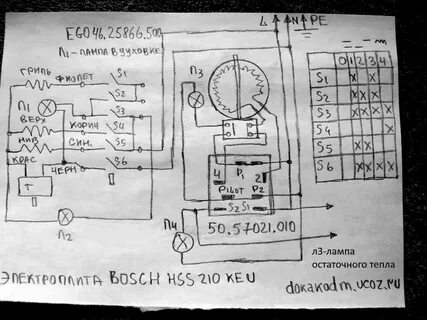 EGO 46.25866.500
Л1-ЛАМПА В ДУХОВКЕ
L N PE
ГРИЛЬ
ФИОЛЕТ
S1
S2
Л1
S3
ВЕРХ
КОРИЧ
S4
НИЗ
СИН.
S5
КРАС
ЧЕРН
S6
T
Л2
Л3
4 P1 2
PILOT P2
S2 S1
Л4
50.57021.010
0 1 2 3 4
S1 X X
S2
S3
S4
S5
S6
л3-лампа
остаточного тепла
ЭЛЕКТРОПЛИТА BOSCH HSS 210 KEU
dokakadm.ucoz.ru